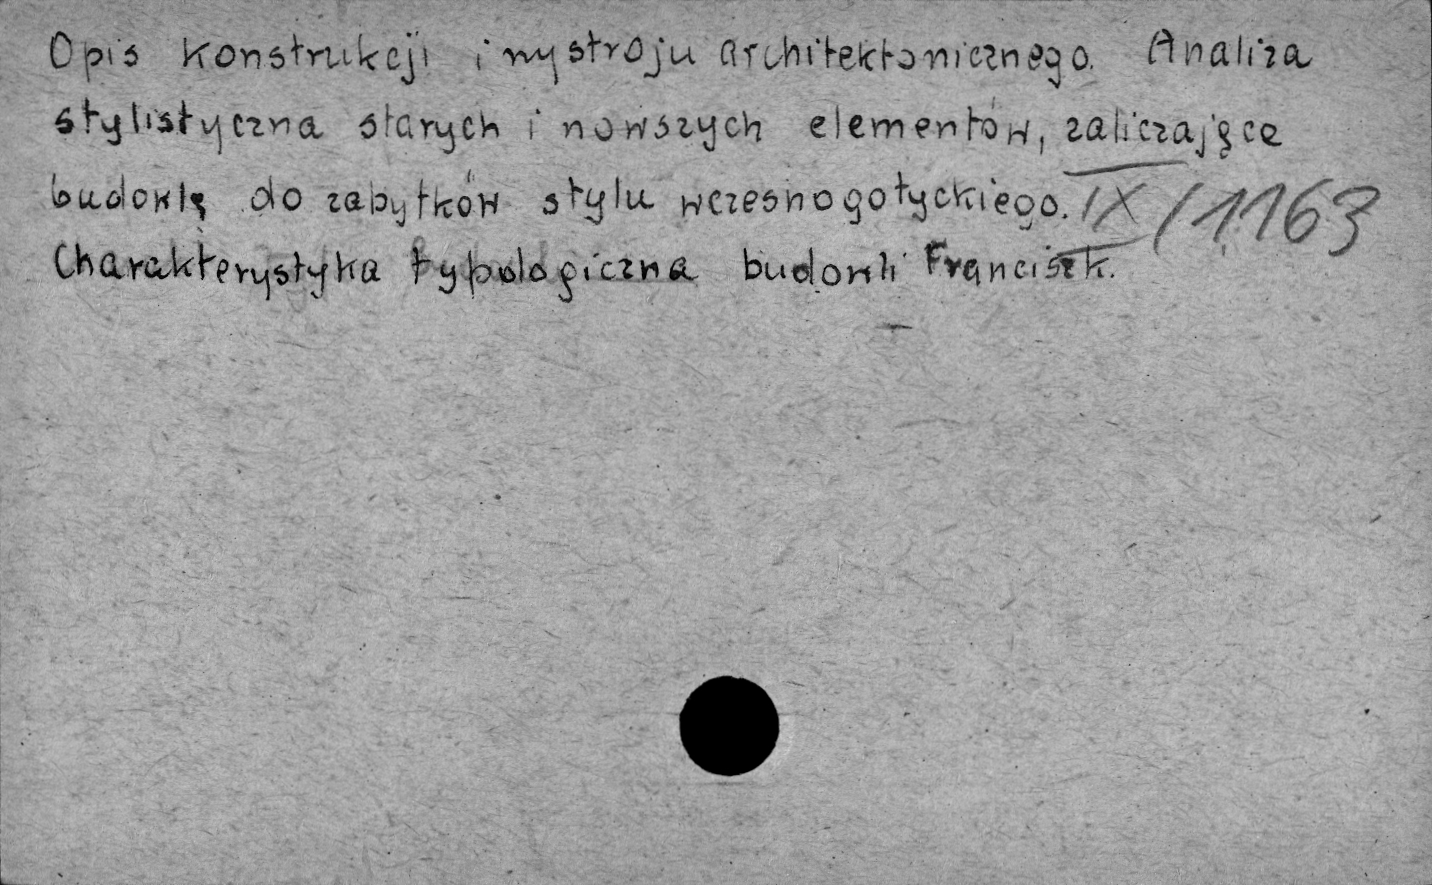 Opis konstrukcji i wystroju architektonicznego. Analiza
stylistyczna starych i nowszych elementów, zaliczające
budowlę do zabytków stylu wczesnogotyckiego. IX/1163
Charakterystyka typologiczna budowli Franciszk.